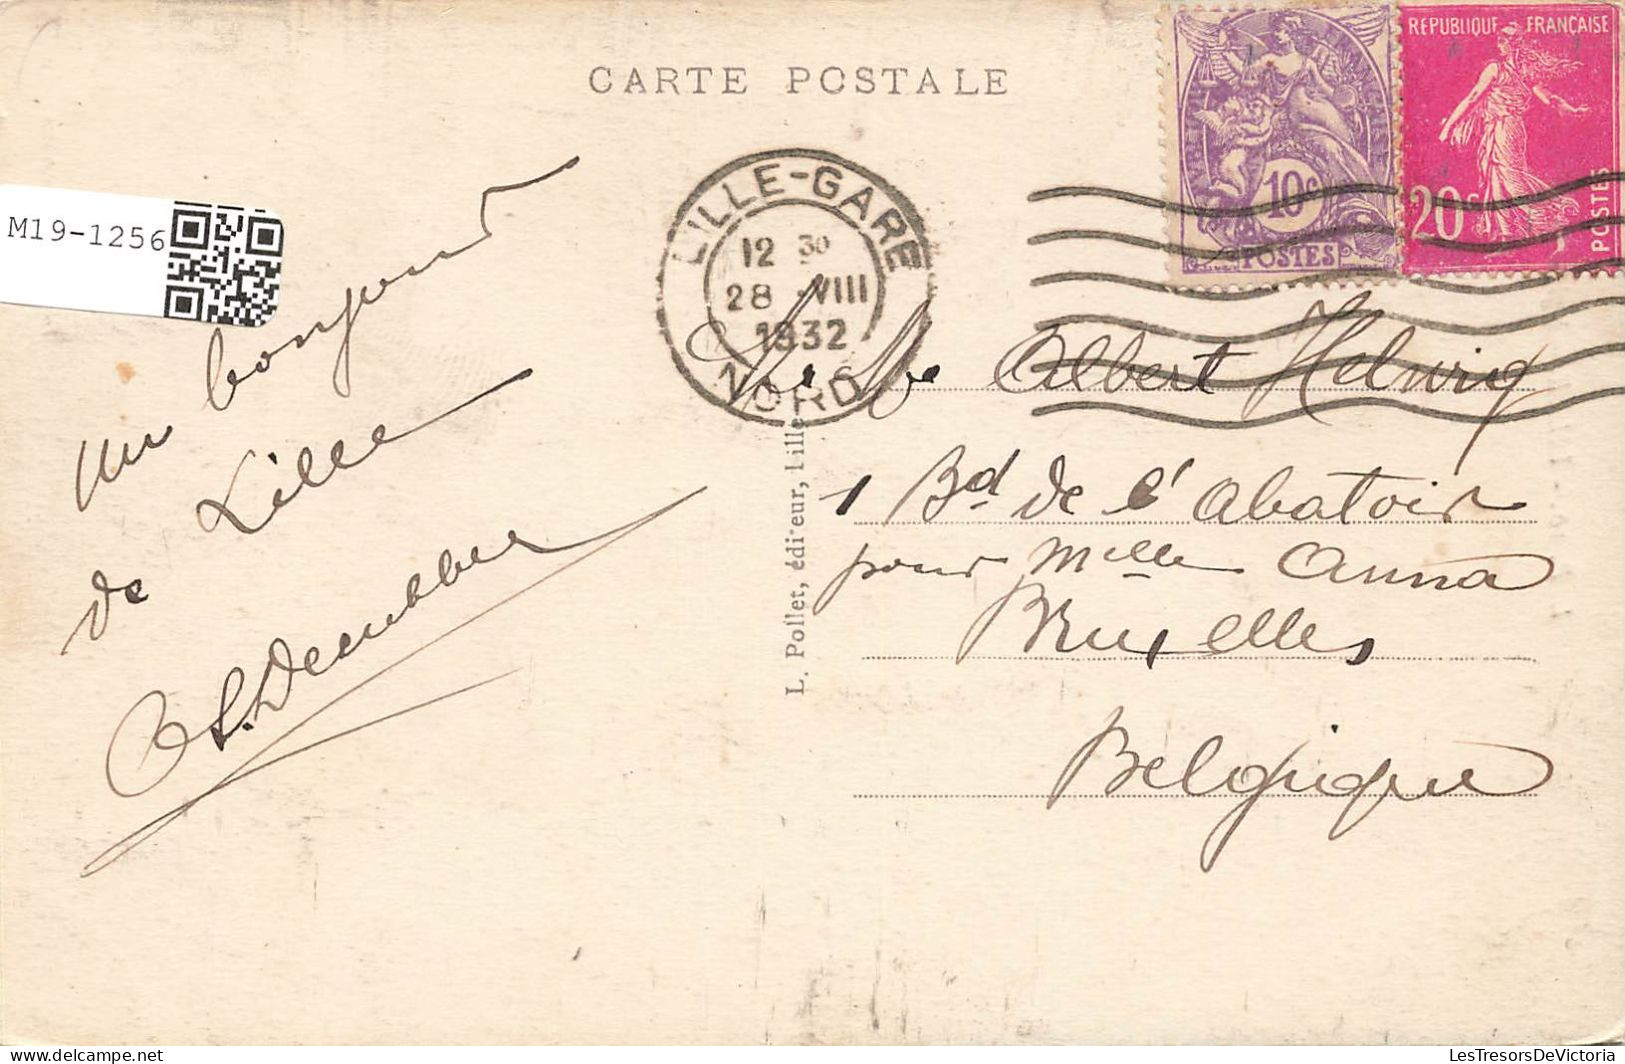 CARTE POSTALE
REPUBLIQUE FRANÇAISE
10c
POSTES
20c
POSTES
M19-1256
LILLE-GARE
12 30
28 VIII
1932
NORD
Un bonjour
de Lille
Albert Helwig
1 Bd de l'Abatoir
pour Mlle Anna
Bruxelles
Belgique
L. Pollet, éditeur, Lille
LesTresorsDeVictoria